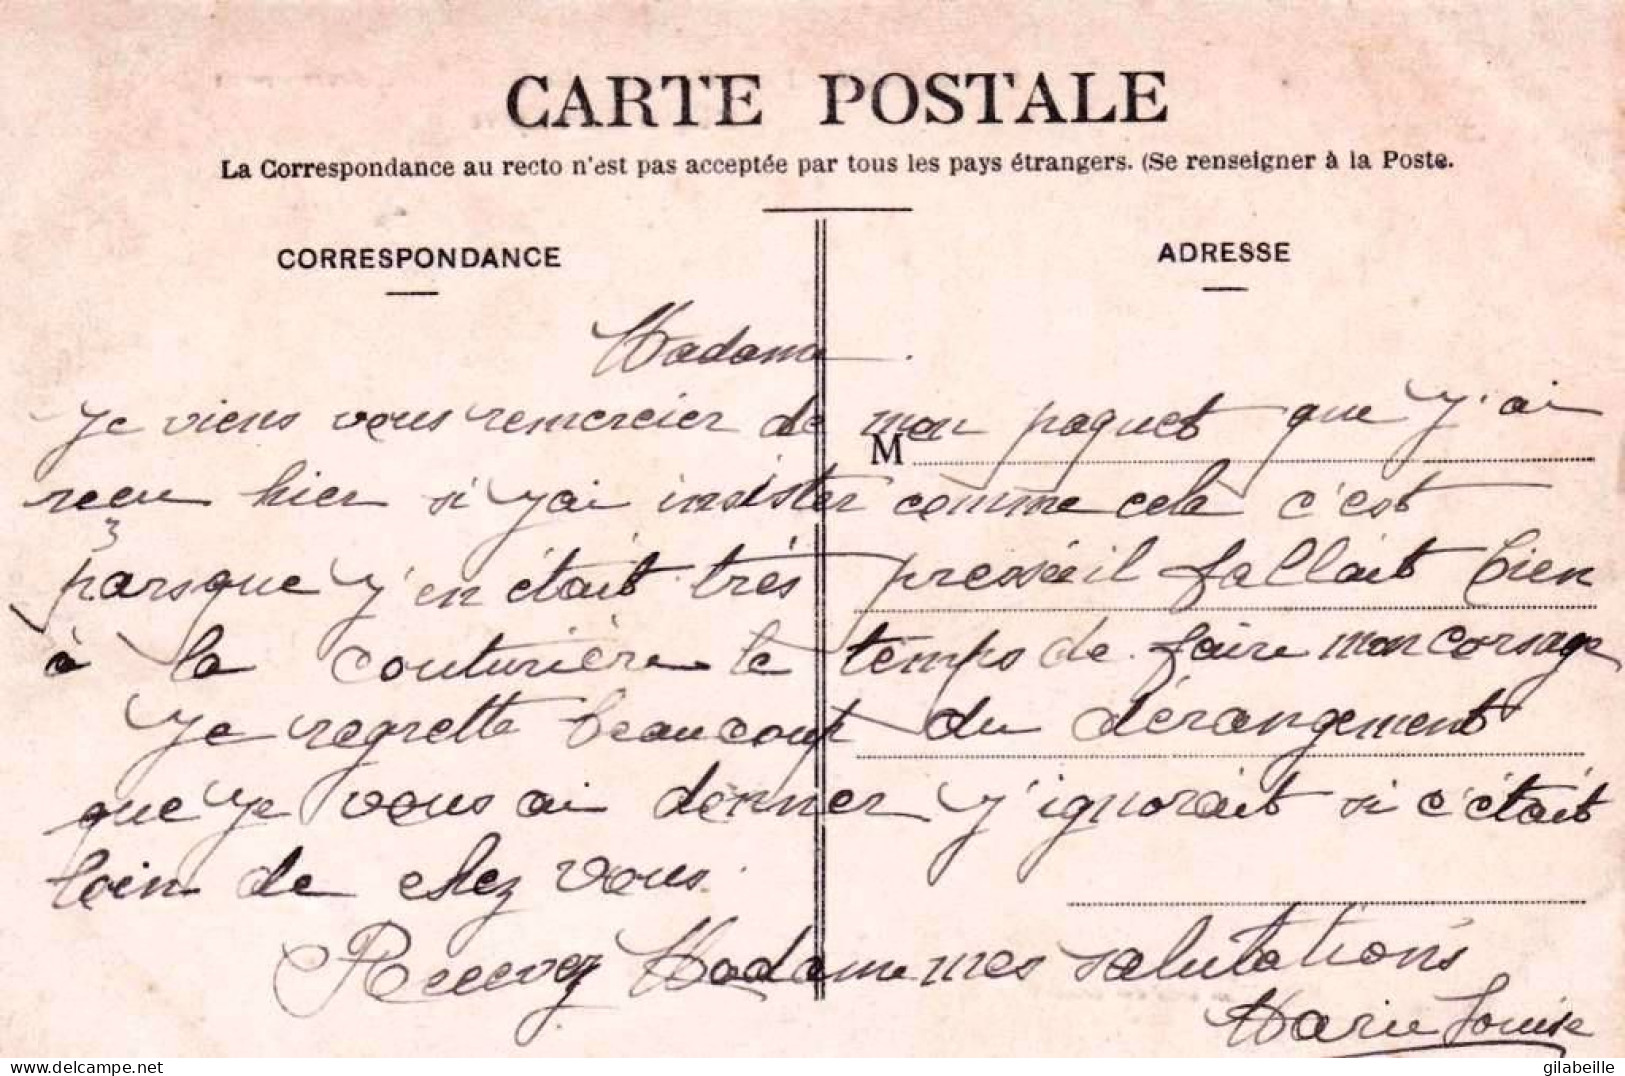 CARTE POSTALE
La Correspondance au recto n'est pas acceptée par tous les pays étrangers. (Se renseigner à la Poste.
CORRESPONDANCE
ADRESSE
M
Madame
Je viens vous remercier de mon paquet que j'ai
reçu hier si j'ai insister comme cela c'est
parsque j'en était très presséeil fallait bien
à la couturière le temps de faire mon corsage
Je regrette beaucoup du dérangement
que je vous ai donner j'ignorait si c'était
loin de chez vous.
Recevez Madame mes salutations
Marie Louise
delcampe.net
gilabeille